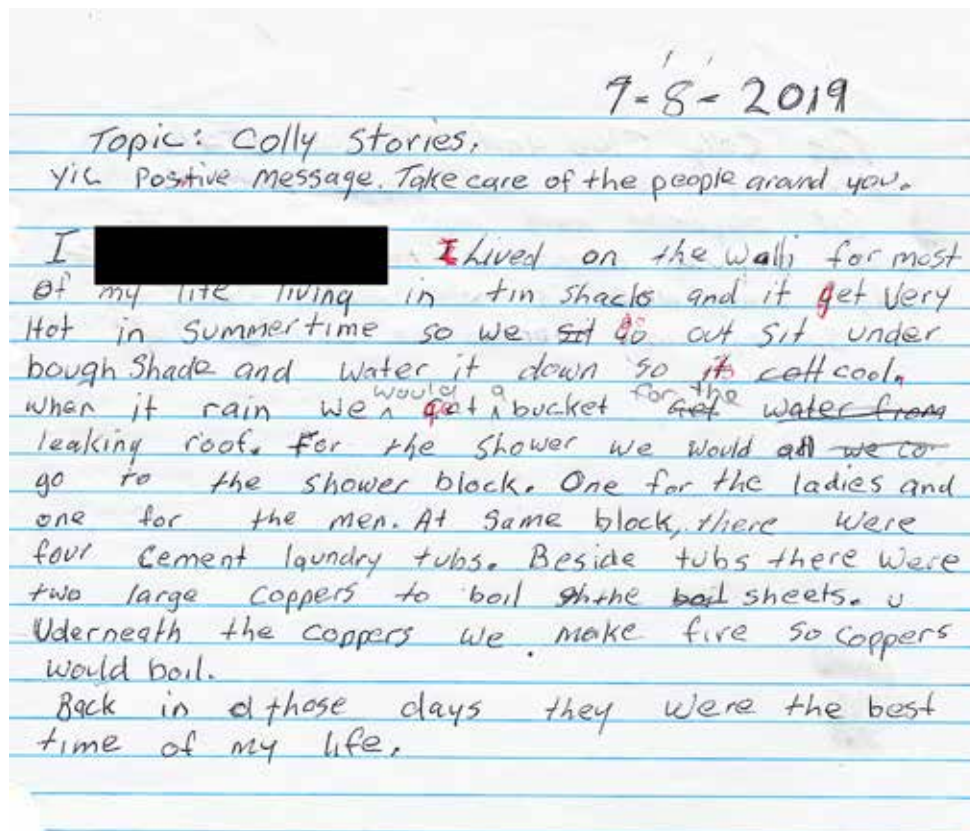 7-8-2019
Topic: Colly Stories.
Yic Positive message. Take care of the people around you.
I I Lived on the Walli for most
of my life living in tin shacks and it get very
Hot in Summertime so we sit go out sit under
bough Shade and water it down so its cool.
when it rain we would get a bucket for the get water from
leaking roof. For the shower we would all we co
go to the shower block. One for the ladies and
one for the men. At Same block, there were
four Cement laundry tubs. Beside tubs there were
two large coppers to boil the boil sheets. u
Uderneath the coppers we make fire so coppers
would boil.
Back in those days they were the best
time of my life.